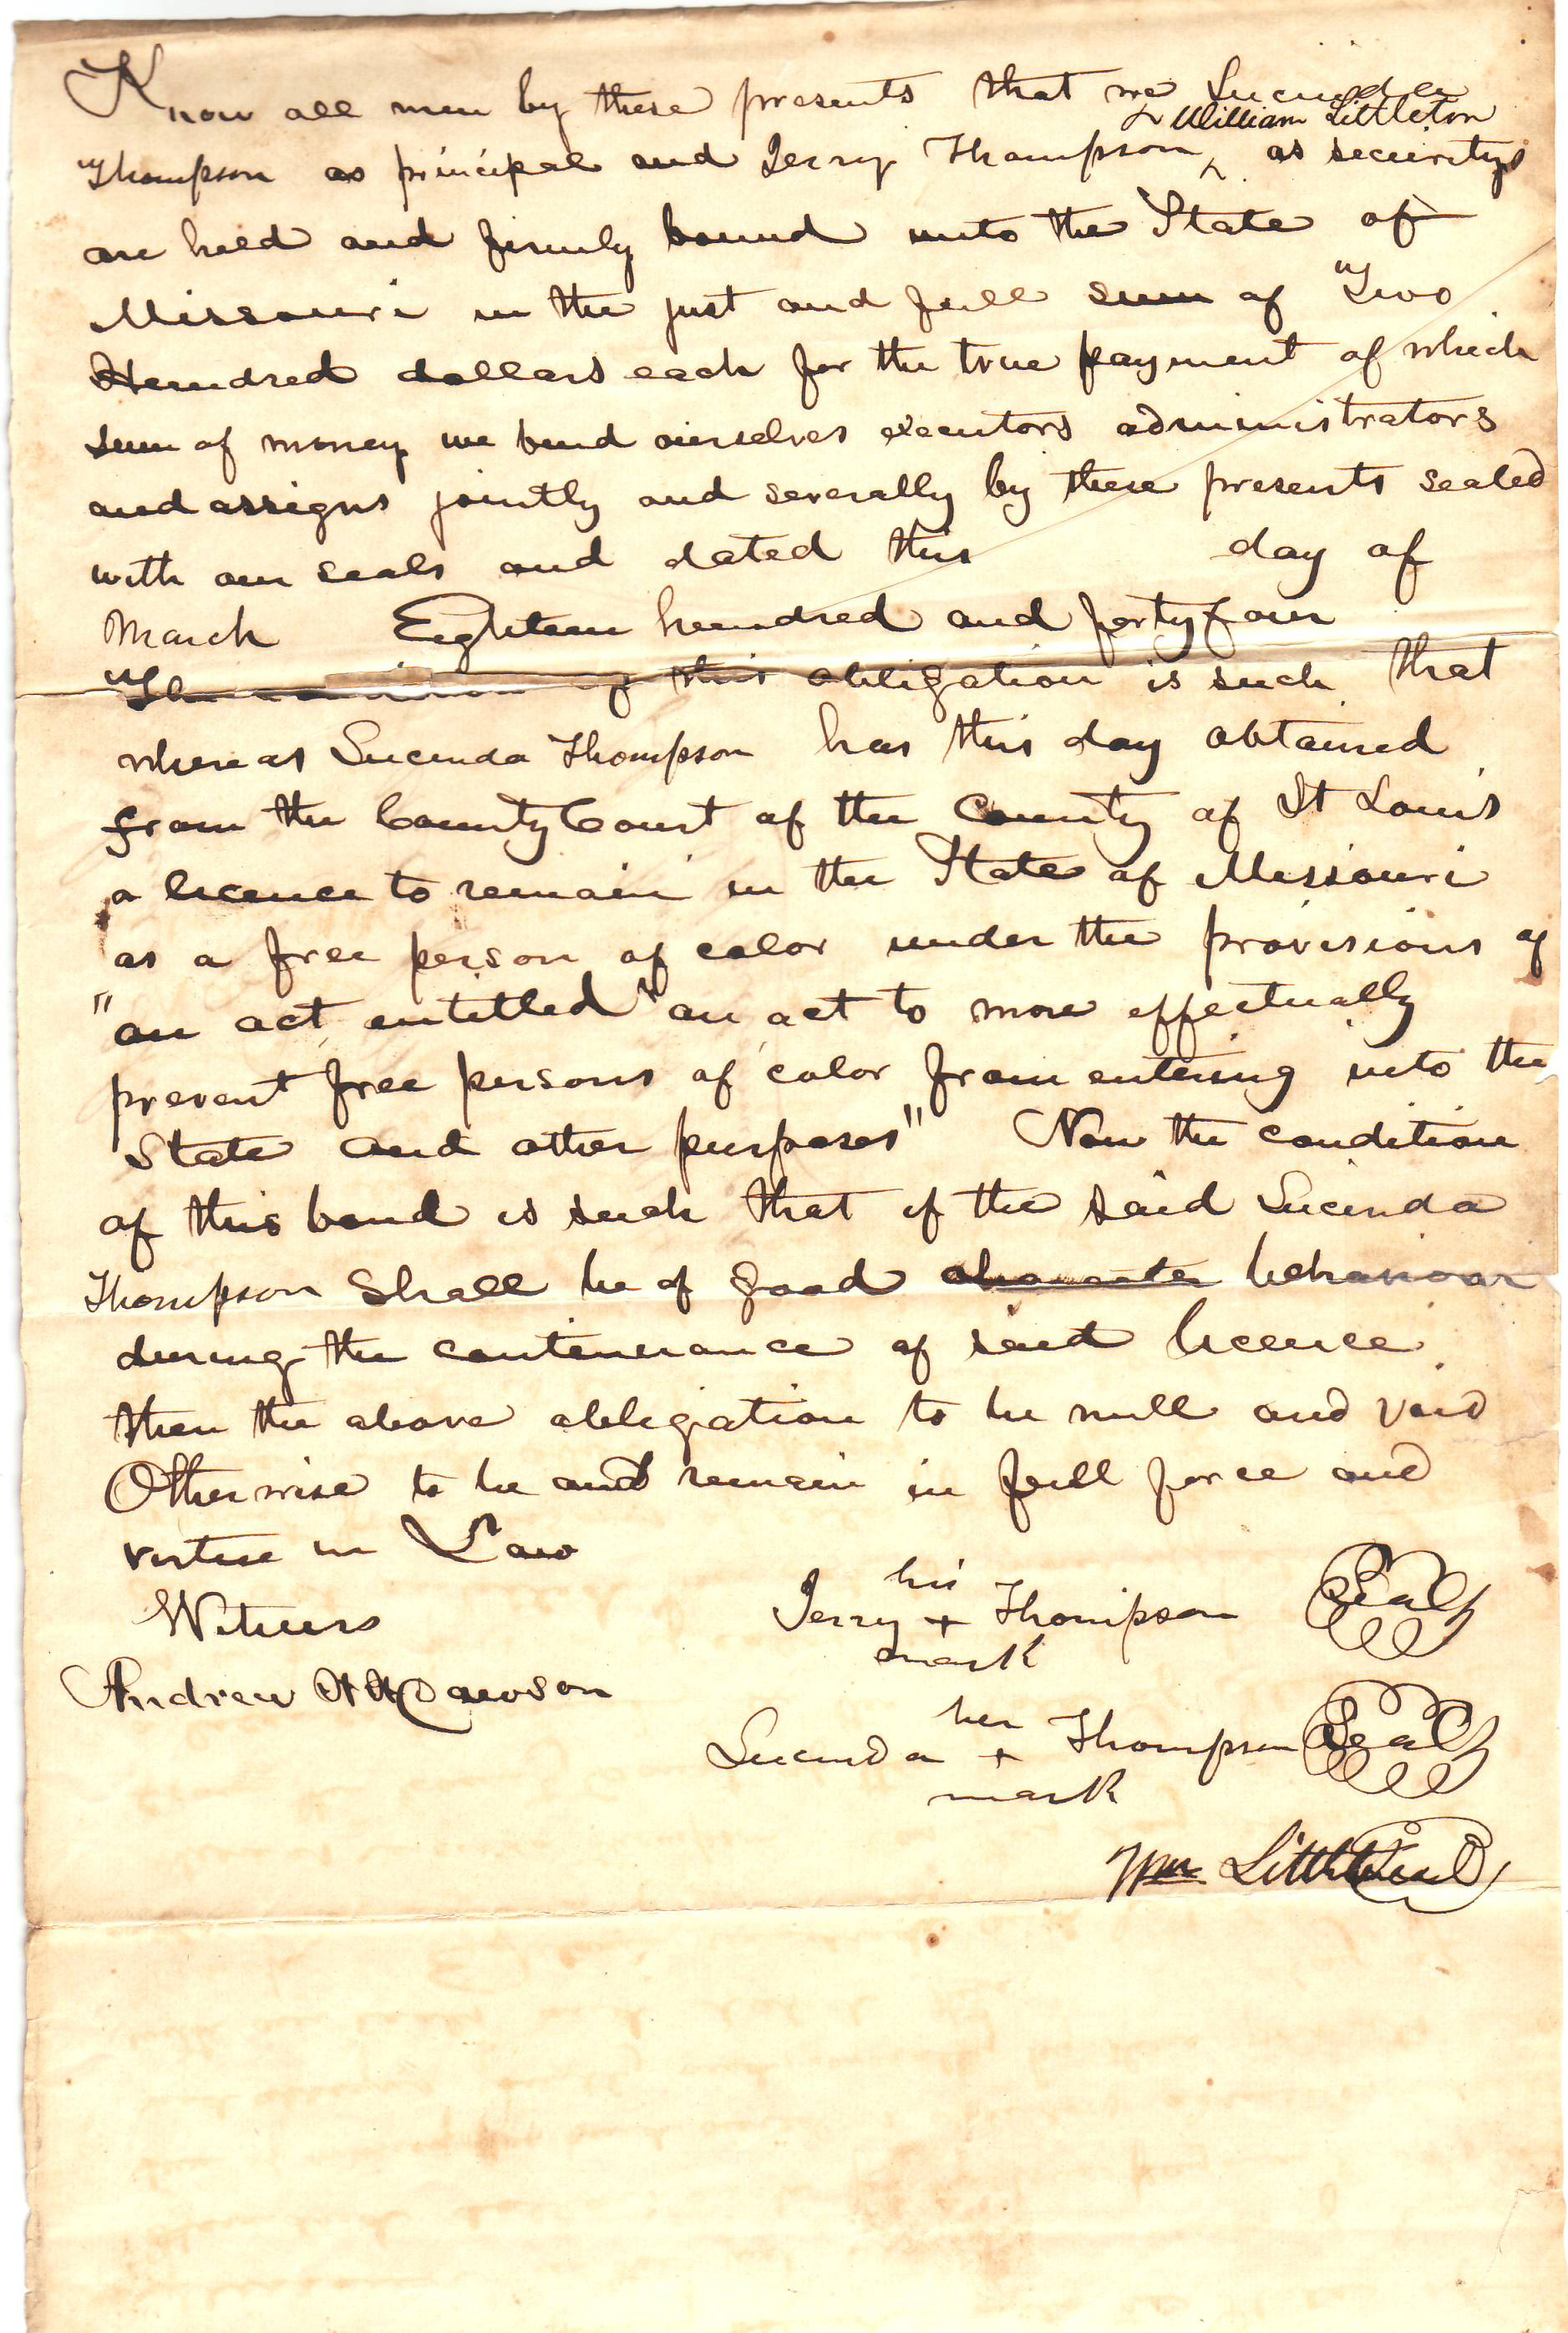 Know all men by these presents that we Lucinda
& William Littleton
Thompson as principal and Jerry Thompson ^ as securitys
are held and firmly bound unto the State of
Missouri in the just and full sum of Two
Hundred dollars each for the true payment of which
sum of money we bind ourselves executors administrators
and assigns jointly and severally by these presents sealed
with our seals and dated this day of
March Eighteen hundred and forty four
The condition of this obligation is such that
whereas Lucinda Thompson has this day obtained
from the County Court of the County of St Louis
a licence to remain in the State of Missouri
as a free person of color under the provisions of
"an act entitled "an act to more effectually
prevent free persons of color from entering into the
State and other purposes" Now the condition
of this bond is such that if the said Lucinda
Thompson Shall be of good character behaviour
during the continuerance of said licence
then the above obligation to be null and void
Otherwise to be and remain in full force and
virtue in Law
his
Jerry + Thompson Seal
mark
Witness
Andrew Dawson
her
Lucinda + Thompson Seal
mark
Wm Littleton Seal